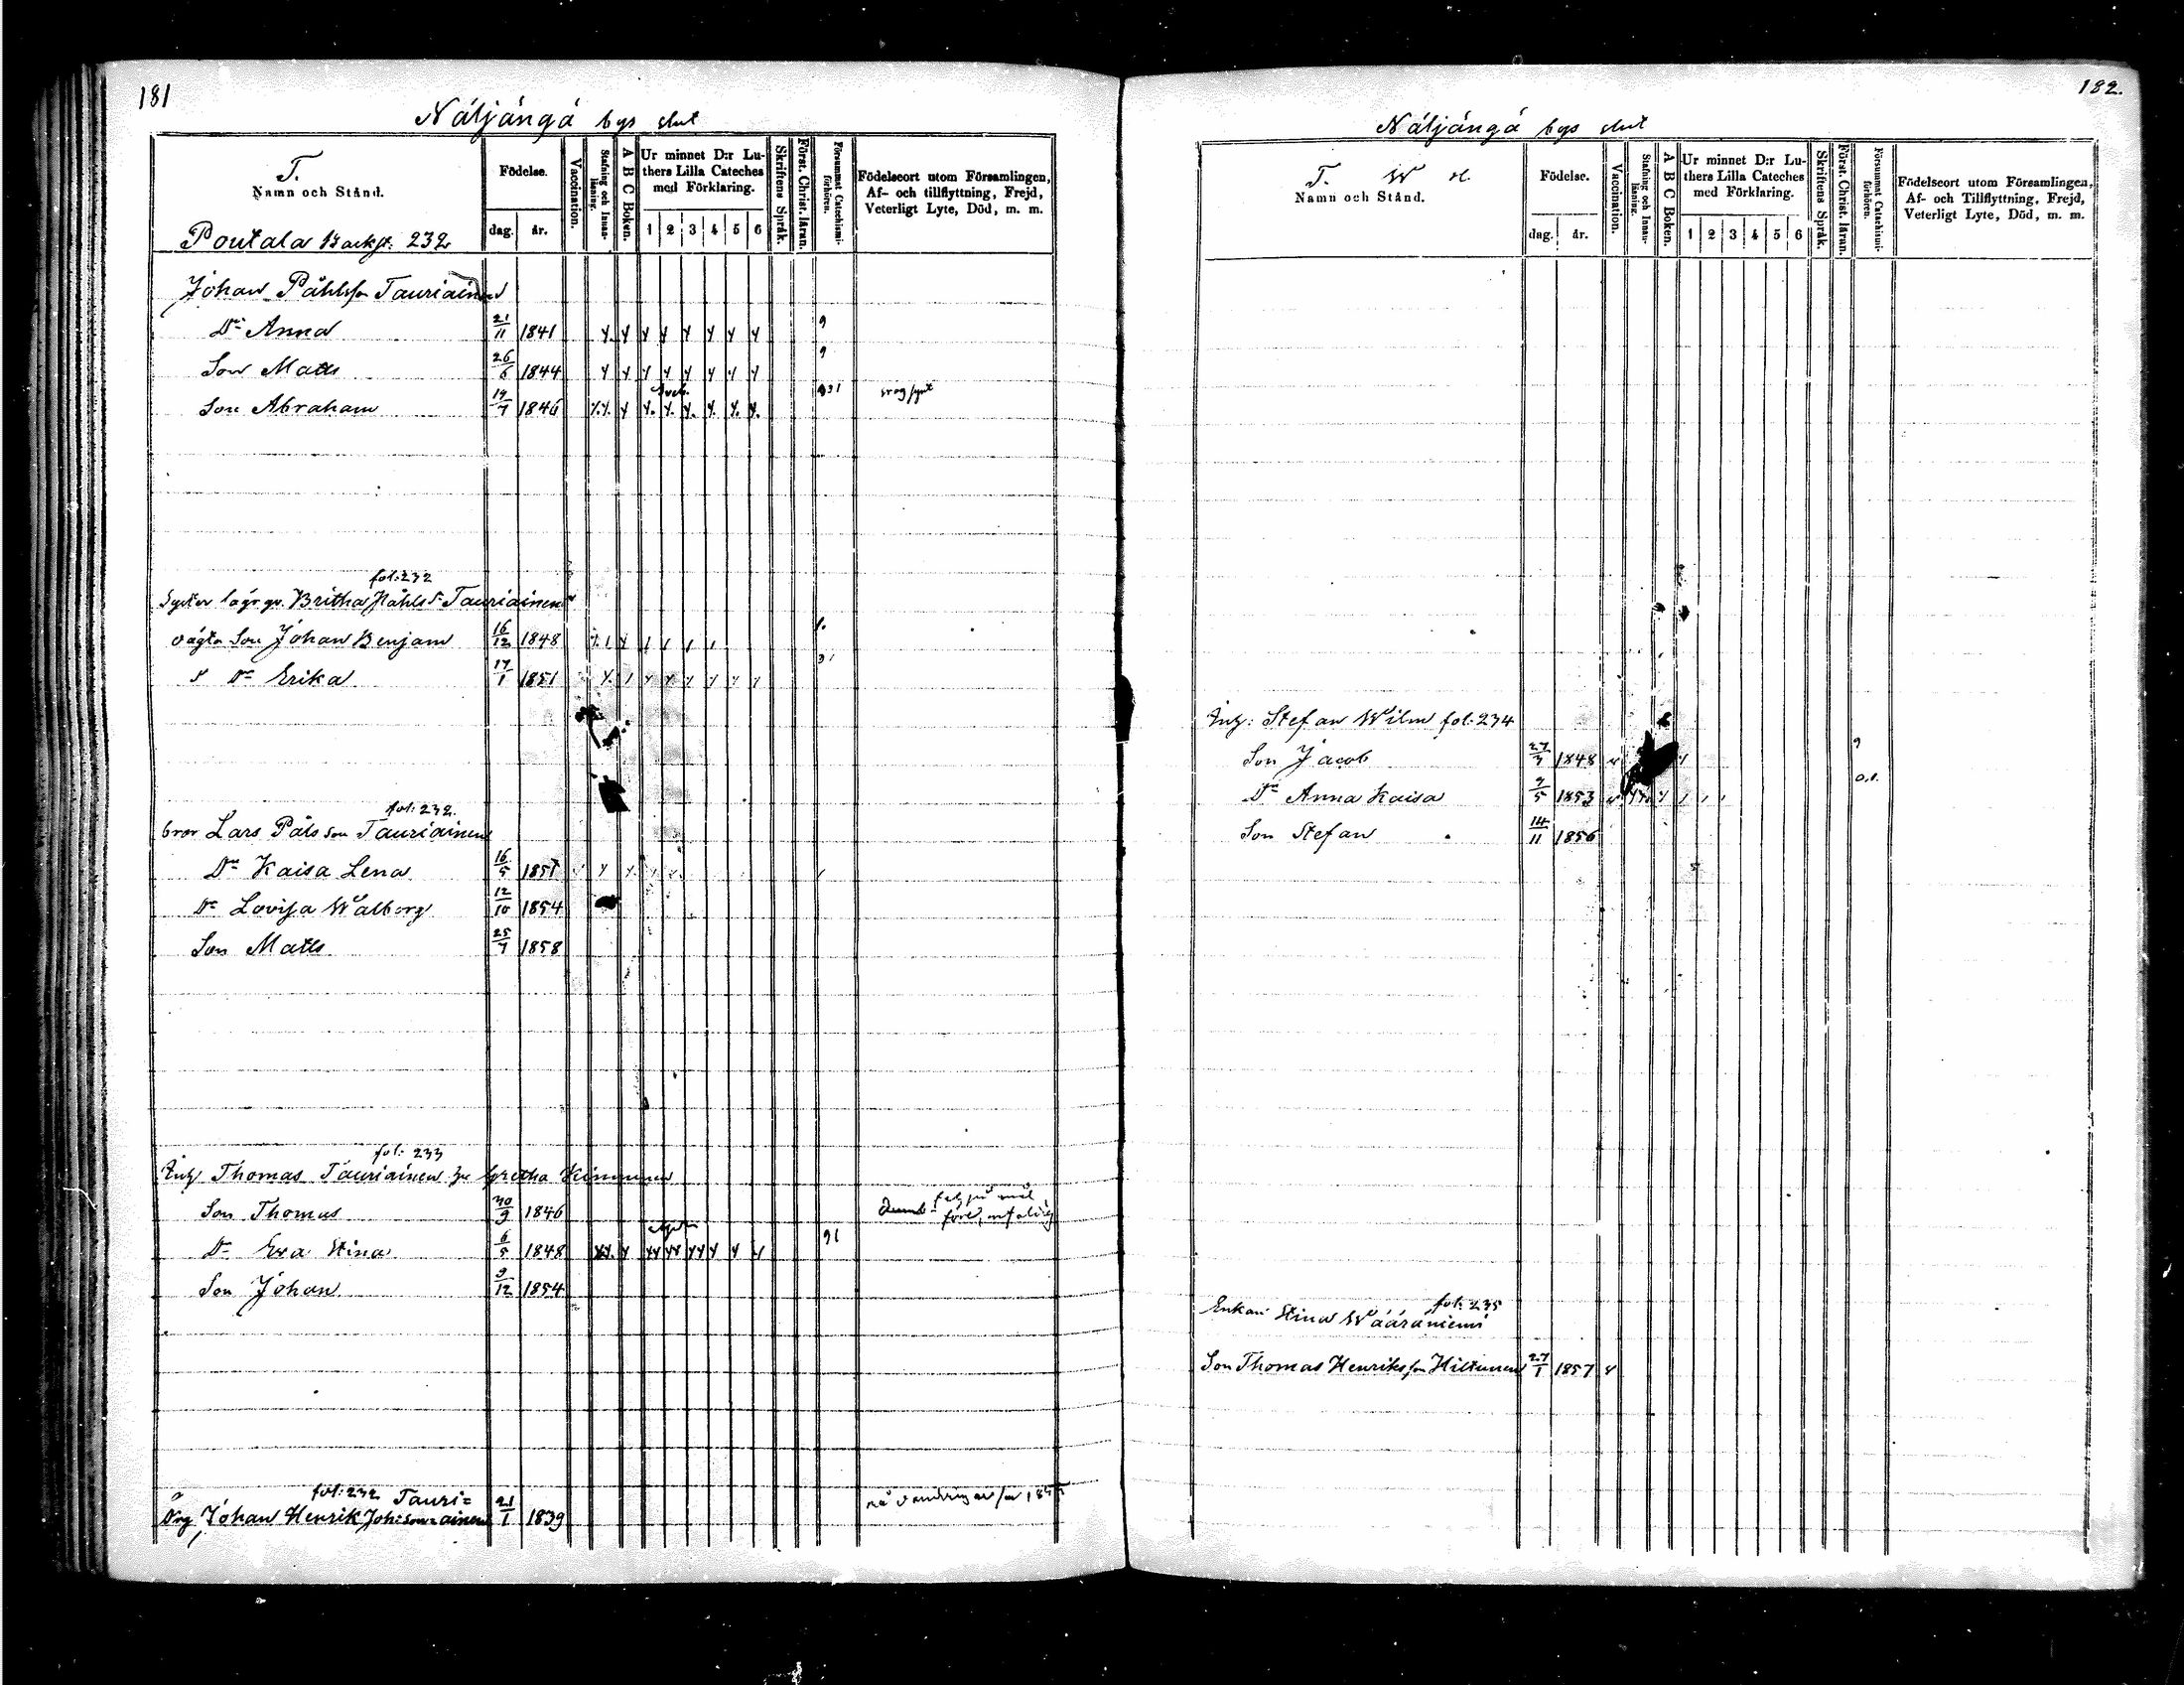 181
Näljängä bys slut
T.
Namn och Stånd.
Poutala Backst. 232
Födelse.
dag. år.
Vaccination.
Stafning och Innan-läsning.
A B C Boken.
Ur minnet D:r Lu-
thers Lilla Cateches
med Förklaring.
1 2 3 4 5 6
Skriftens Språk.
Först. Christ. läran.
Försummat Catechismi-förhören.
Födelseort utom Församlingen,
Af- och tillflyttning, Frejd,
Veterligt Lyte, Död, m. m.
Johan Påhlsson Tauriainen
Dr Anna 21/11 1841 9
Son Matts 26/6 1844 9
Son Abraham 19/7 1846
fol: 232
Syster lägr qv. Britha Påhls dr Tauriainen
oägta Son Johan Benjam 16/12 1848
s Dr Erika 17/1 1851
fol: 232.
bror Lars Påls son Tauriainen
Dr Kaisa Lena 16/5 1851
Dr Lovisa Walborg 12/10 1854
Son Matts 25/7 1858
fol: 233
Inh Thomas Tauriainen hu Gretha Kinnunen
Son Thomas 30/9 1846
Dr Eva Stina 6/5 1848 91
Son Johan 9/12 1854
fol: 232 Tauri=
Drg Johan Henrik Joh:son ainen 21/1 1839
182.
Näljängä bys slut
T. W
Namn och Stånd.
Födelse.
dag. år.
Vaccination.
Stafning och Innan-läsning.
A B C Boken.
Ur minnet D:r Lu-
thers Lilla Cateches
med Förklaring.
1 2 3 4 5 6
Skriftens Språk.
Först. Christ. läran.
Försummat Catechismi-förhören.
Födelseort utom Församlingen,
Af- och Tillflyttning, Frejd,
Veterligt Lyte, Död, m. m.
Inh: Stefan Wilm fol. 234
Son Jacob 27/3 1848 9
Dr Anna Kaisa 9/5 1853 0.1.
Son Stefan 14/11 1856
fol: 235
Enkan Stina Wääräniemi
Son Thomas Henriksson Hiltunen 27/1 1857